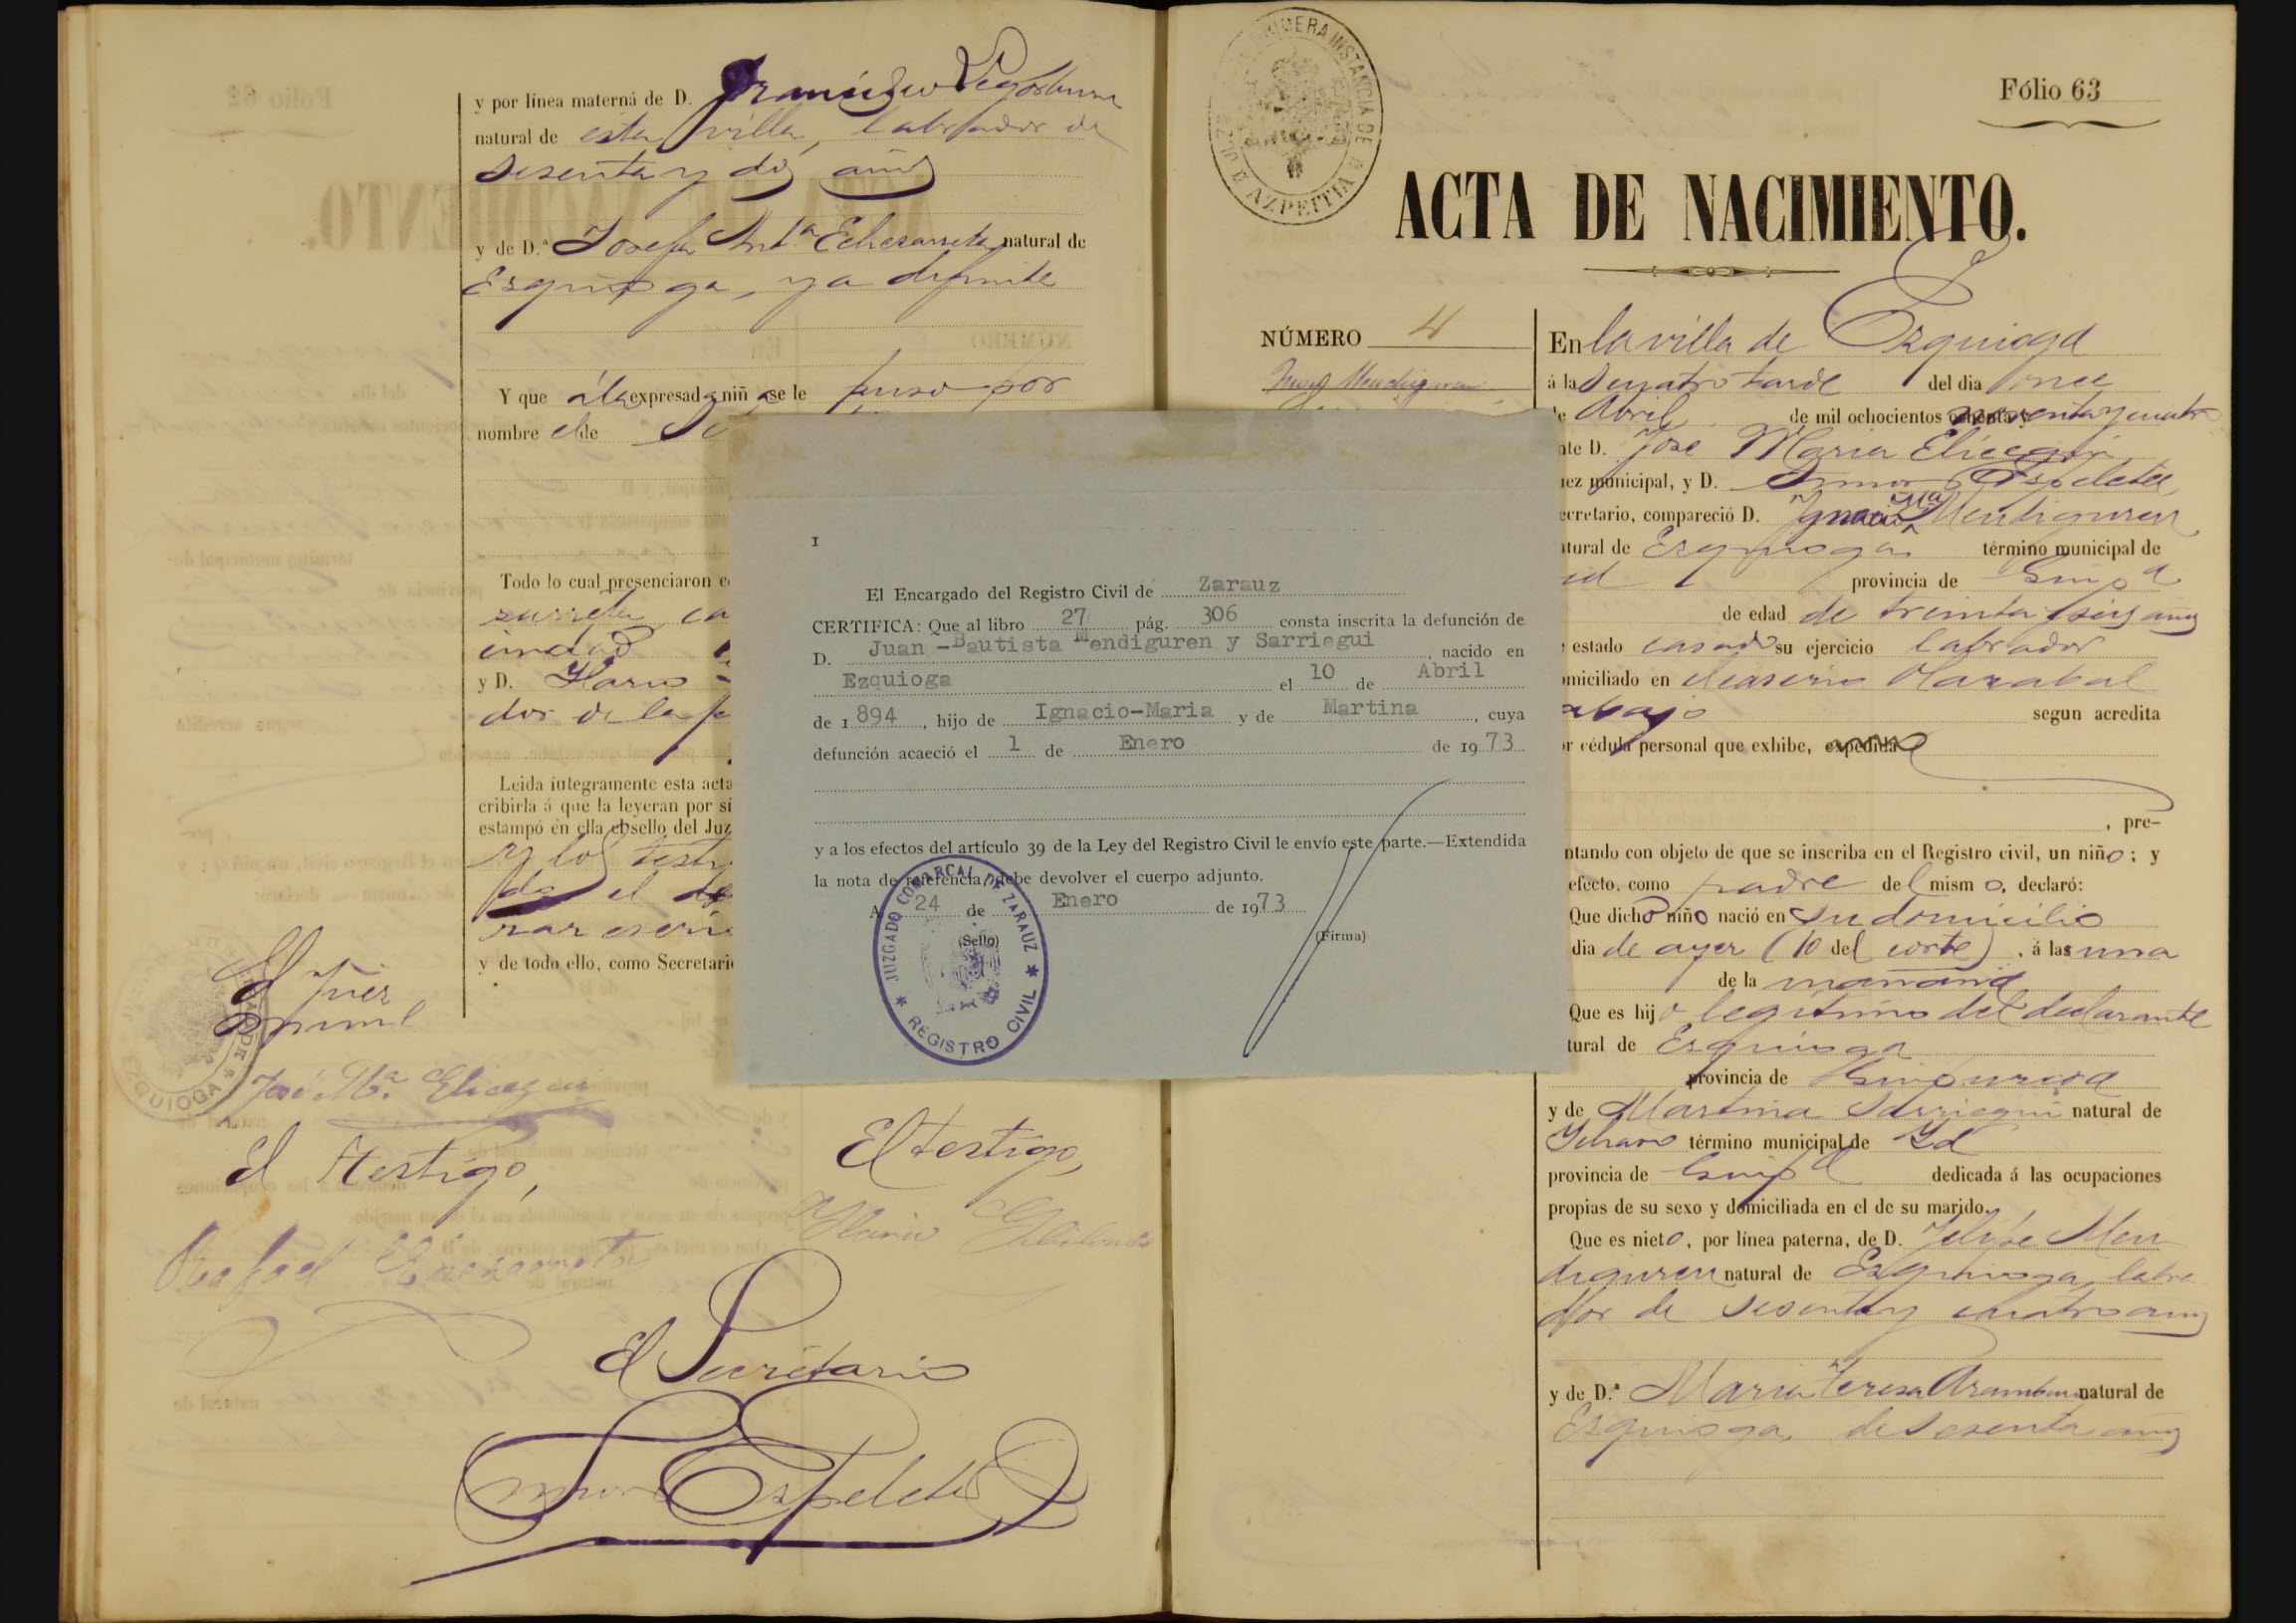 y por línea materna de D. Francisco Legorburu
natural de esta villa, labrador de
sesenta y dos años
y de D.ª Josefa Ant.ª Echezarreta natural de
Ezquioga, ya difunta
Y que á la expresada niña se le puso por
nombre el de
Todo lo cual presenciaron
y D. Hario
dor de la
Leida integramente esta acta
cribirla á que la leyeran por sí
estampó en ella el sello del Juz
y los testi
y de todo ello, como Secretari
El Juez
José M.ª Elicegui
EZQUIOGA
El testigo,
El testigo,
Rafael
El Secretario
Ezpeleta
JUZGADO DE PRIMERA INSTANCIA DE AZPEITIA
Fólio 63
ACTA DE NACIMIENTO.
NÚMERO 4
En la villa de Ezquioga
á las cuatro tarde del dia once
de Abril de mil ochocientos noventa y cuatro
nte D. José Maria Elicegui
uez municipal, y D. Ezpeleta
ecretario, compareció D. Ignacio Mª Mendiguren
atural de Ezquioga término municipal de
id provincia de Guipª
de edad de treinta y seis años
estado casado su ejercicio labrador
omiciliado en el caserío Marabal
abajo segun acredita
or cédula personal que exhibe, expedida
, pre-
ntando con objeto de que se inscriba en el Registro civil, un niño; y
efecto, como padre del mismo, declaró:
Que dicho niño nació en su domicilio
dia de ayer (10 del corte), á las una
de la mañana
Que es hijo legitimo del declarante
tural de Ezquioga
provincia de Guipuzcoa
y de Martina Sarriegui natural de
Ichaso término municipal de Id
provincia de Guipª dedicada á las ocupaciones
propias de su sexo y domiciliada en el de su marido.
Que es nieto, por línea paterna, de D. Felipe Men
diguren natural de Ezquioga, labra
dor de sesenta y cuatro años
y de D.ª Maria Teresa Aramburu natural de
Ezquioga, de sesenta años
I
El Encargado del Registro Civil de Zarauz
CERTIFICA: Que al libro 27 pág. 306 consta inscrita la defunción de
D. Juan -Bautista Mendiguren y Sarriegui, nacido en
Ezquioga el 10 de Abril
de 1.894, hijo de Ignacio-Maria y de Martina, cuya
defunción acaeció el 1 de Enero de 1973
y a los efectos del artículo 39 de la Ley del Registro Civil le envío este parte.—Extendida
la nota de referencia debe devolver el cuerpo adjunto.
A 24 de Enero de 1973
(Sello)
(Firma)
JUZGADO COMARCAL DE ZARAUZ * REGISTRO CIVIL *